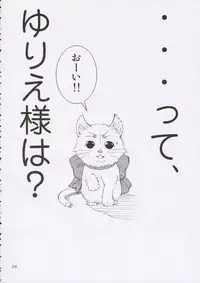 ・・・って、
おーい!!
ゆりえ様は?
26